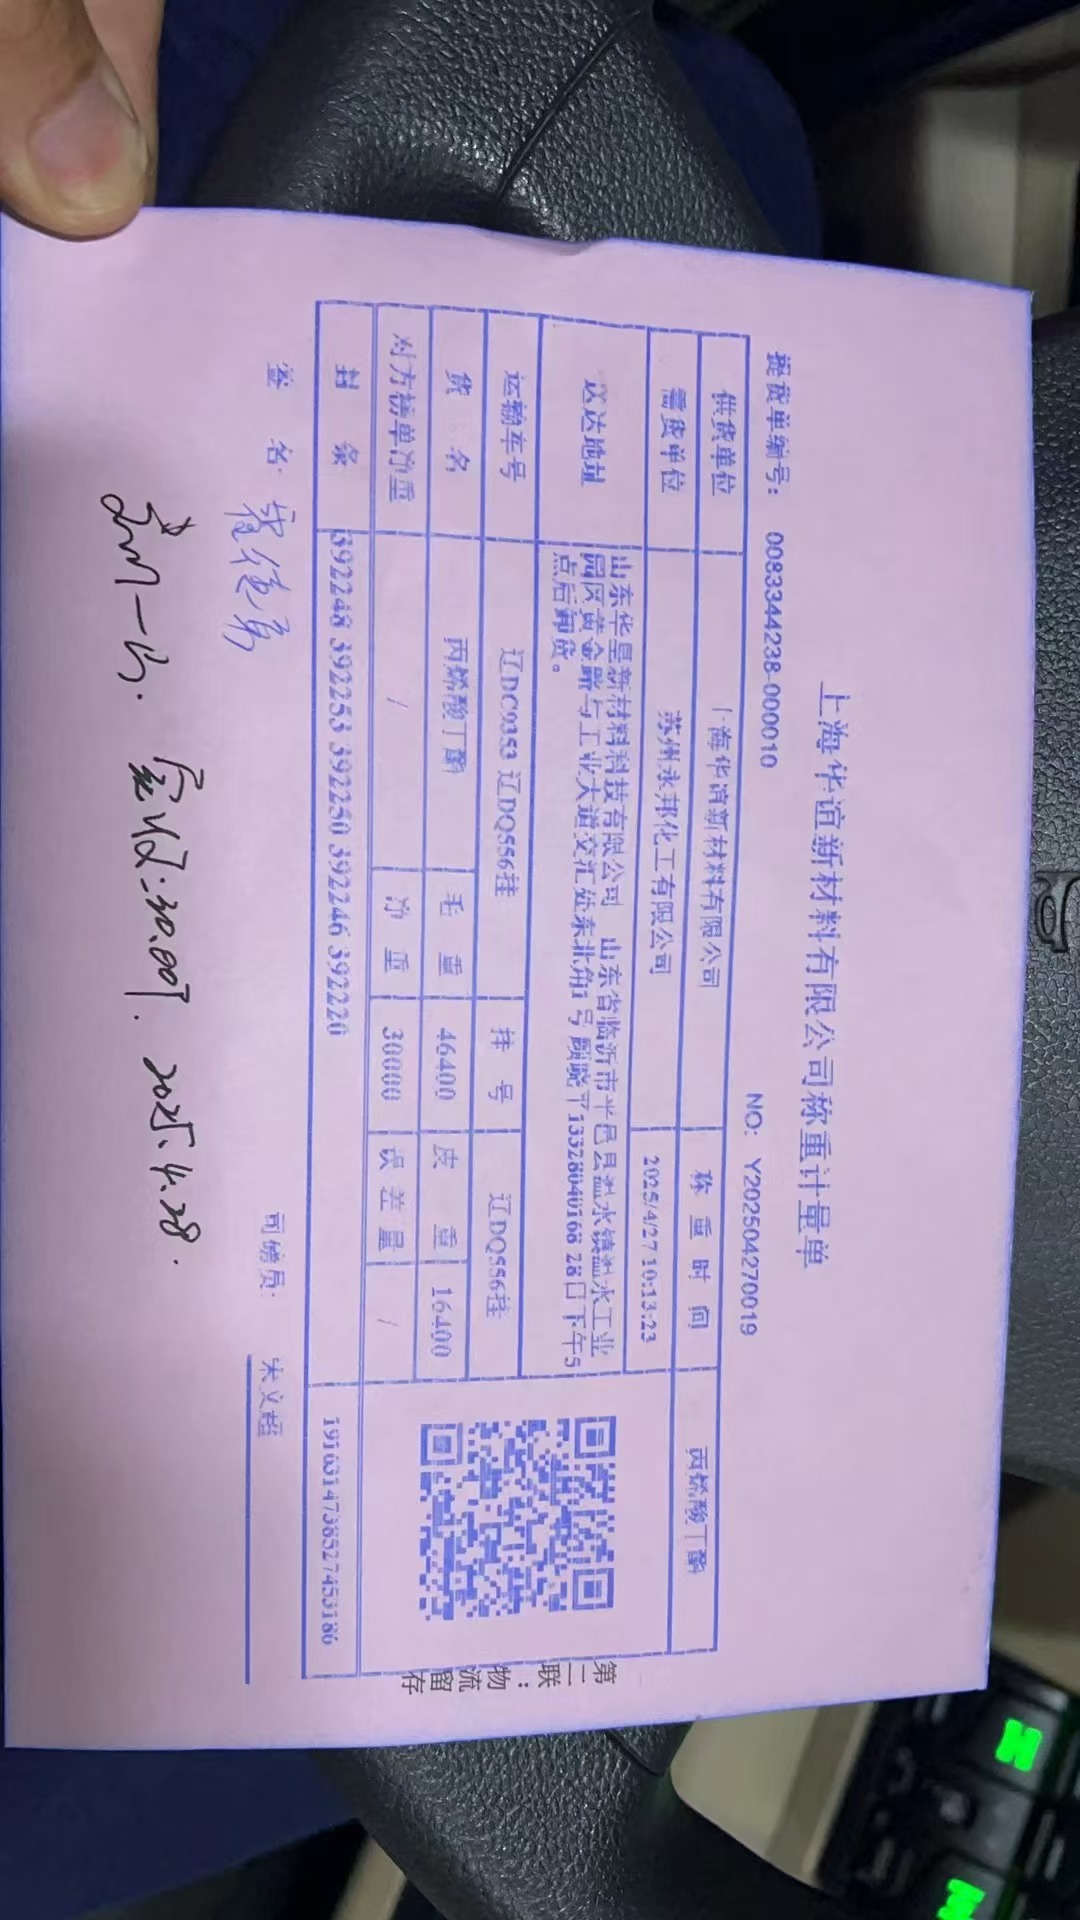 上海华谊新材料有限公司称重计量单
提货单编号： 0083344238-000010 NO: Y202504270019
供货单位 上海华谊新材料有限公司 称重时间 丙烯酸丁酯
需货单位 苏州永邦化工有限公司 2025/4/27 10:13:23
送达地址 山东华星新材料科技有限公司 山东省临沂市平邑县温水镇温水工业
园区黄金路与工业大道交汇处东北角1号 顾晓平13328040168 28日下午5
点后卸货。
运输车号 辽DC9353 辽DQ556挂 挂号 辽DQ556挂
货名 丙烯酸丁酯 毛重 46400 皮重 16400
对方榜单净重 / 净重 30000 误差量 /
封条 392248 392253 392250 392246 392220 1916314738527453186
签名: 司磅员: 宋文超
实收:30.00T. 2025.4.28.
第二联：物流留存
N